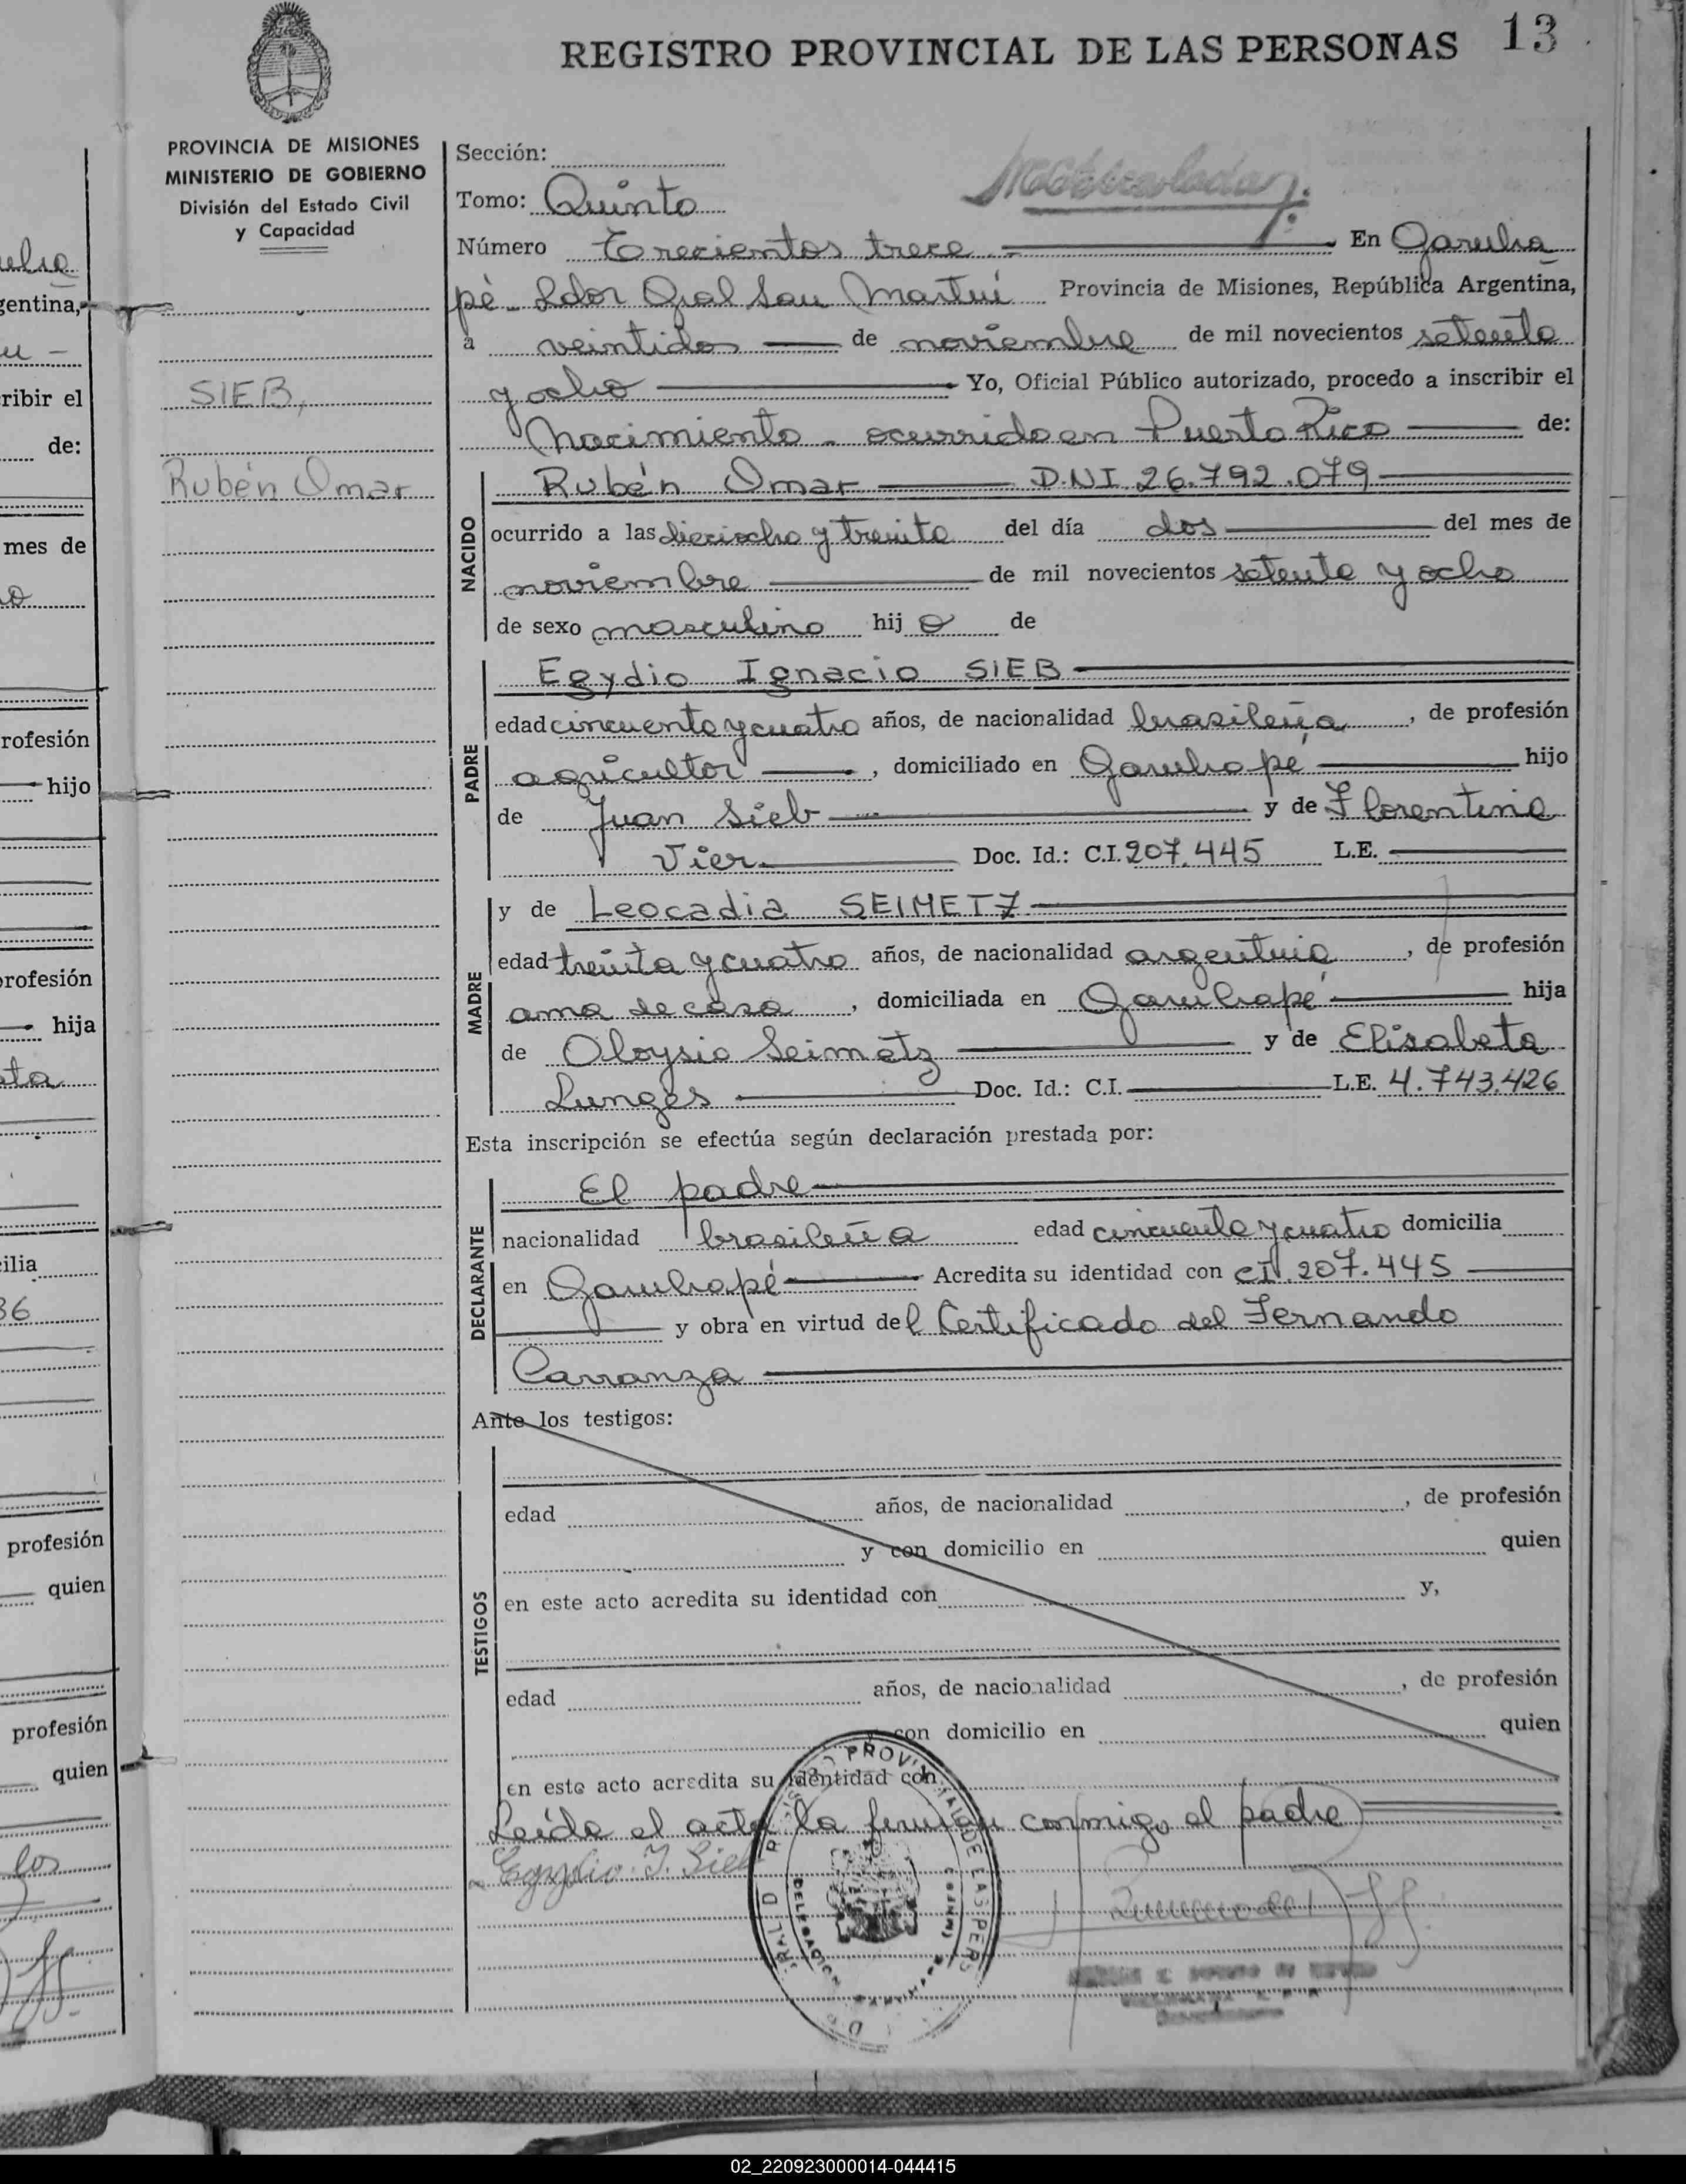 REGISTRO PROVINCIAL DE LAS PERSONAS 13
PROVINCIA DE MISIONES
MINISTERIO DE GOBIERNO
División del Estado Civil
y Capacidad
SIEB,
Rubén Omar
Sección:
Tomo: Quinto
Número Trecientos trece En Garuha
pé - Ldor Gral San Martín Provincia de Misiones, República Argentina,
a veintidos de noviembre de mil novecientos setenta
y ocho Yo, Oficial Público autorizado, procedo a inscribir el
Nacimiento - ocurrido en Puerto Rico de:
NACIDO
Rubén Omar D.N.I 26.792.079
ocurrido a las dieciocho y treinta del día dos del mes de
noviembre de mil novecientos setenta y ocho
de sexo masculino hij o de
PADRE
Egydio Ignacio SIEB
edad cincuenta y cuatro años, de nacionalidad brasileña, de profesión
agricultor, domiciliado en Garuhapé hijo
de Juan Sieb y de Florentina
Vier Doc. Id.: C.I. 207.445 L.E.
MADRE
y de Leocadia SEIMETZ
edad treinta y cuatro años, de nacionalidad argentina, de profesión
ama de casa, domiciliada en Garuhapé hija
de Aloysio Seimetz y de Elisabeta
Lunges Doc. Id.: C.I. L.E. 4.743.426
Esta inscripción se efectúa según declaración prestada por:
DECLARANTE
El padre
nacionalidad brasileña edad cincuenta y cuatro domicilia
en Garuhapé Acredita su identidad con CI. 207.445
y obra en virtud del Certificado del Fernando
Carranza
Ante los testigos:
TESTIGOS
edad años, de nacionalidad , de profesión
y con domicilio en quien
en este acto acredita su identidad con y,
edad años, de nacionalidad , de profesión
y con domicilio en quien
en este acto acredita su identidad con
Leída el acta la firman conmigo el padre
Egydio I. Sieb
02_220923000014-044415